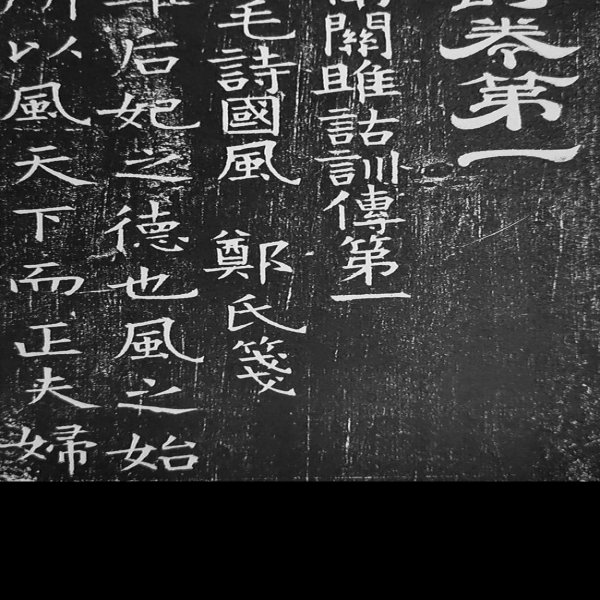 卷第一
關雎詁訓傳第一
毛詩國風 鄭氏箋
后妃之德也風之始
所以風天下而正夫婦